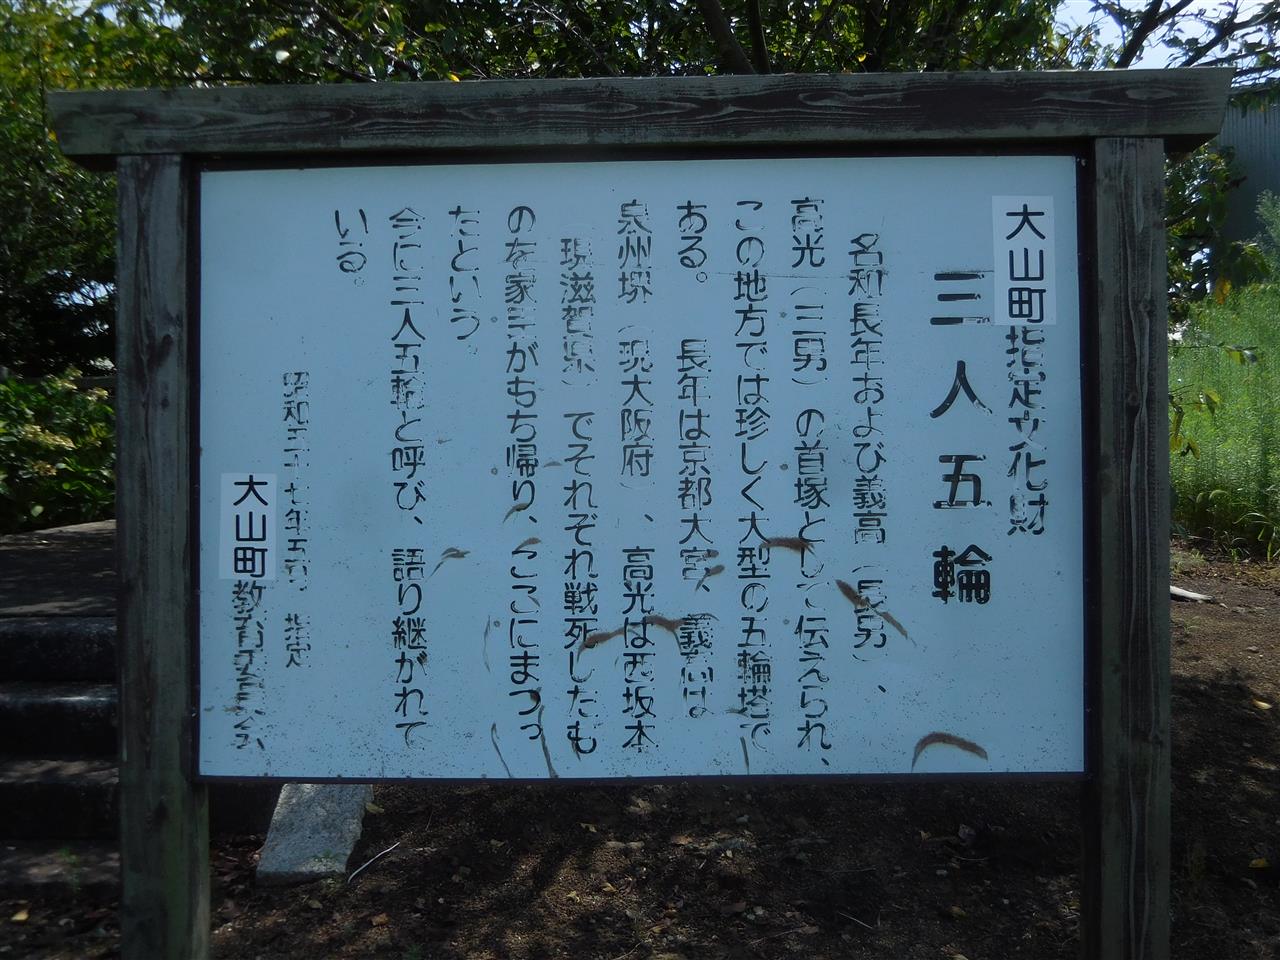 大山町指定文化財
三人五輪
名和長年および義高（長男）、
高光（三男）の首塚として伝えられ、
この地方では珍しく大型の五輪塔で
ある。長年は京都大宮、義高は
泉州堺（現大阪府）、高光は西坂本
（現滋賀県）でそれぞれ戦死したも
のを家臣がもち帰り、ここにまつっ
たという。
今に三人五輪と呼び、語り継がれて
いる。
昭和五十七年五月 指定
大山町教育委員会